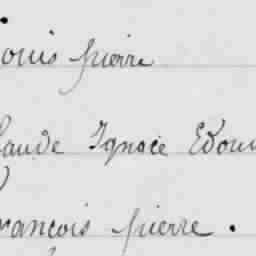 ouis pierre
laude Ignace Edou
rançois pierre .